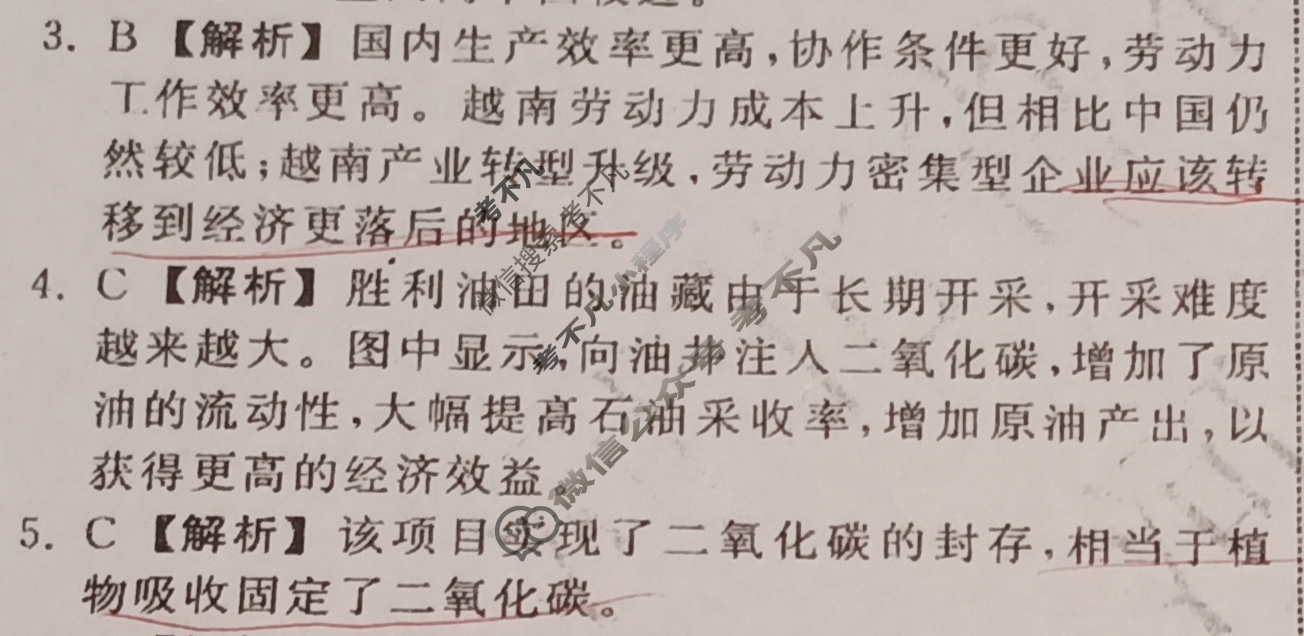 3. B【解析】国内生产效率更高,协作条件更好,劳动力
工作效率更高。越南劳动力成本上升,但相比中国仍
然较低;越南产业转型升级,劳动力密集型企业应该转
移到经济更落后的地区。
4. C【解析】胜利油田的油藏由于长期开采,开采难度
越来越大。图中显示,向油井注入二氧化碳,增加了原
油的流动性,大幅提高石油采收率,增加原油产出,以
获得更高的经济效益。
5. C【解析】该项目实现了二氧化碳的封存,相当于植
物吸收固定了二氧化碳。
考不凡
微信搜索 考不凡
考不凡小程序
微信公众 考不凡